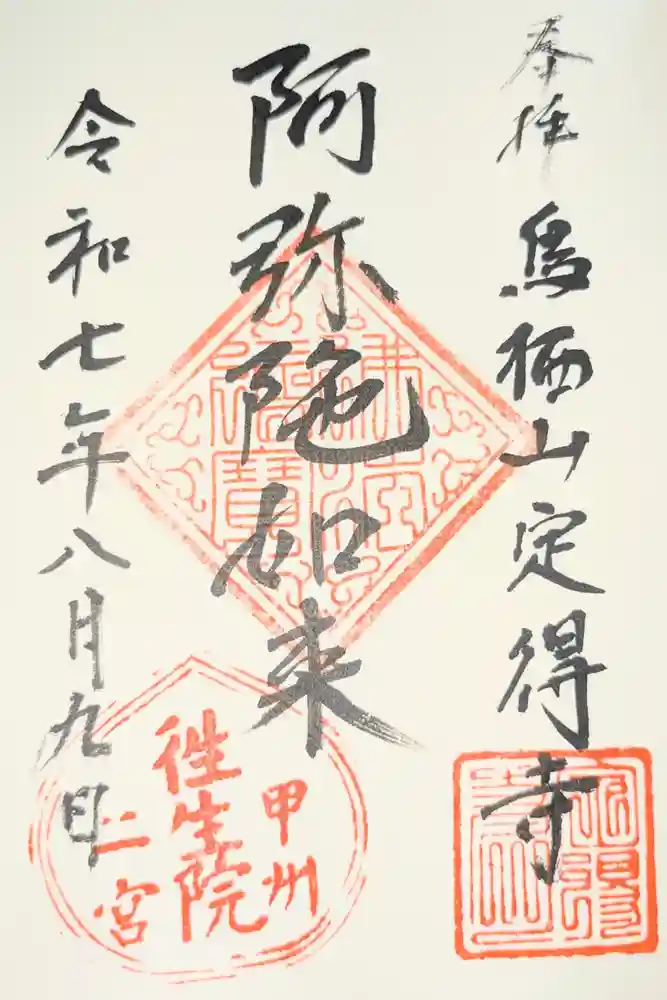 奉拝
鳥栖山定得寺
阿弥陀如来
令和七年八月九日
佛法
僧寶
甲州
徃生院
二宮